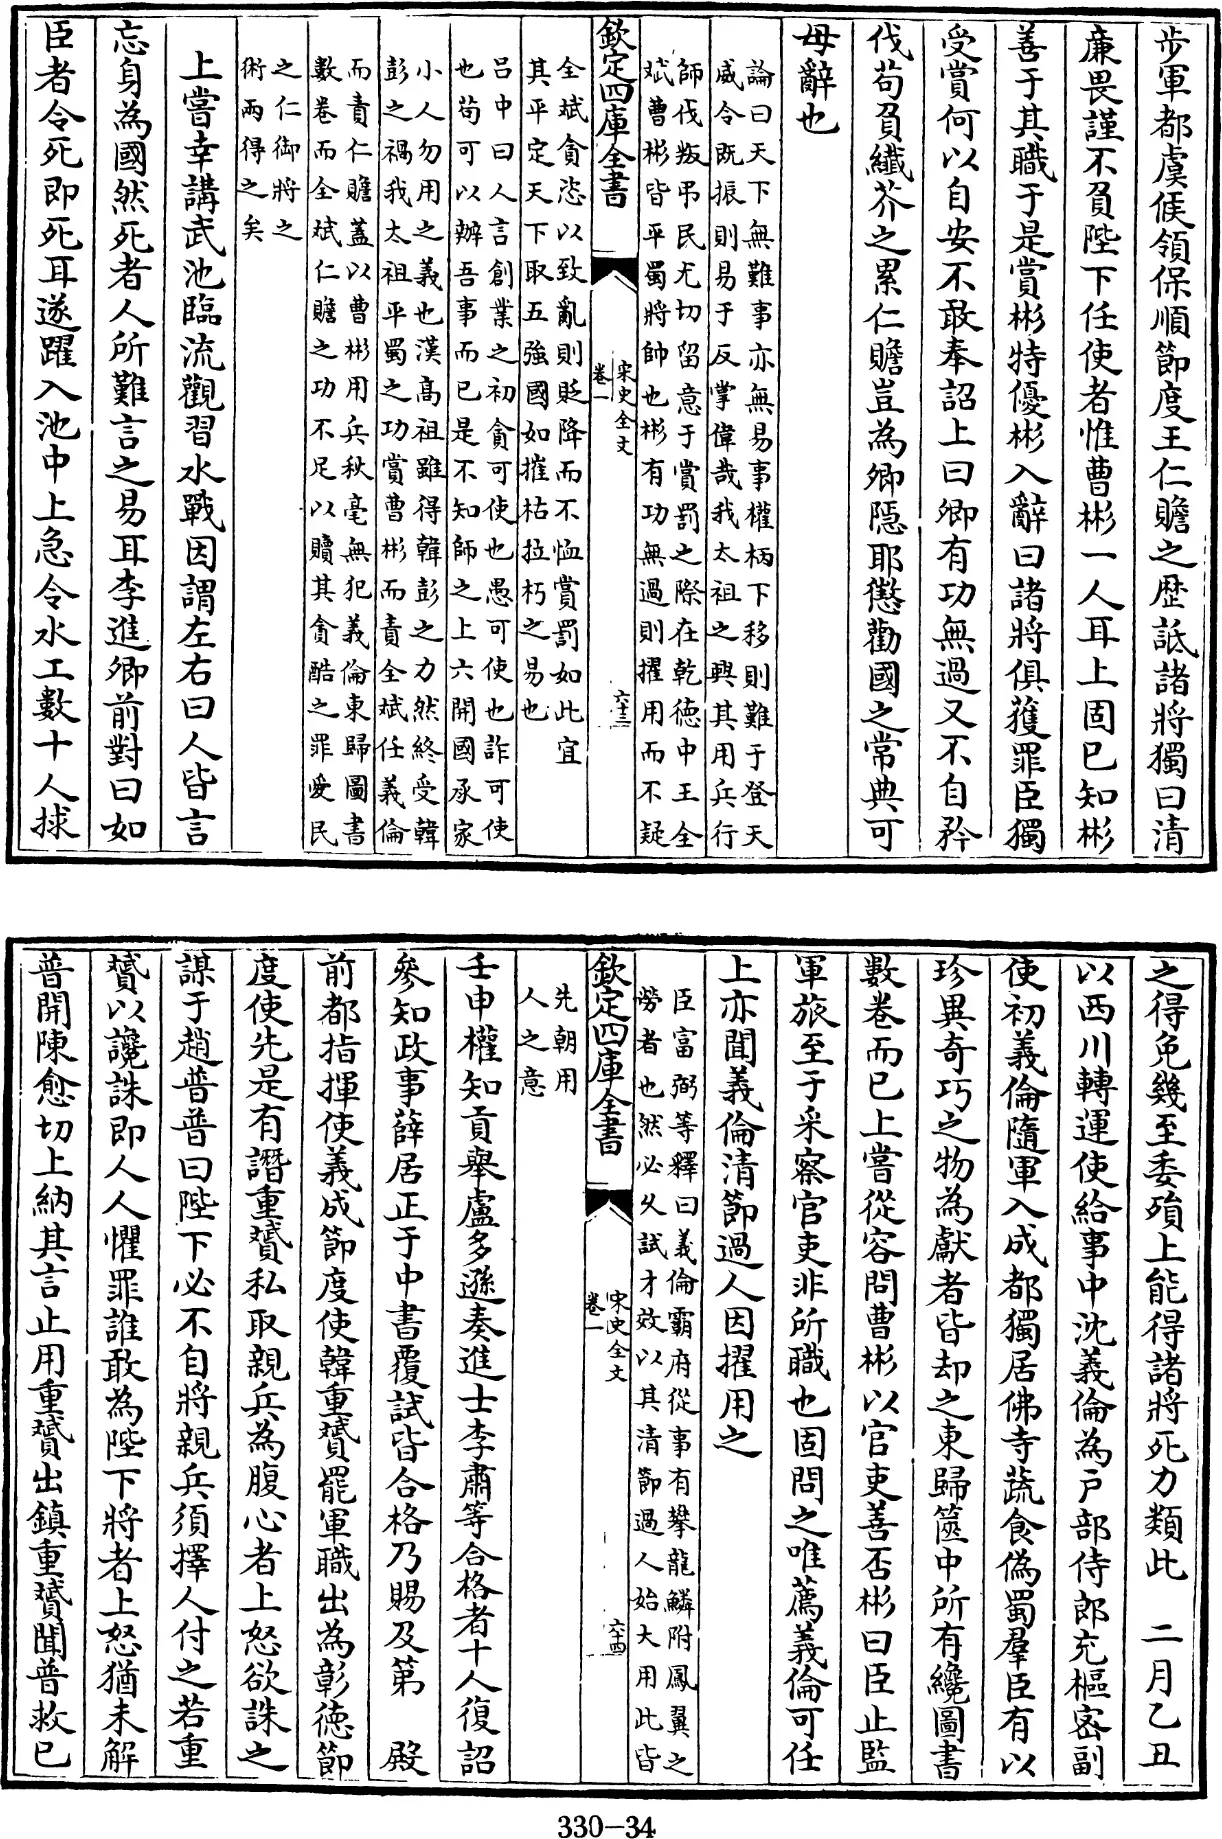 步軍都虞侯領保順節度王仁贍之歴詆諸將獨曰清
廉畏謹不負陛下任使者惟曹彬一人耳上固已知彬
善于其職于是賞彬特優彬入辭曰諸將俱獲罪臣獨
受賞何以自安不敢奉詔上曰卿有功無過又不自矜
伐苟負纎芥之累仁贍豈為卿隠耶懲勸國之常典可
毋辭也
論曰天下無難事亦無易事權柄下移則難于登天
威令既振則易于反掌偉哉我太祖之興其用兵行
師伐叛弔民尤切留意于賞罰之際在乾德中王全
斌曹彬皆平蜀將帥也彬有功無過則擢用而不疑
欽定四庫全書
宋史全文
卷一
六十三
全斌貪恣以致亂則貶降而不恤賞罰如此宜
其平定天下取五強國如摧枯拉朽之易也
呂中曰人言創業之初貪可使也愚可使也詐可使
也苟可以辦吾事而已是不知師之上六開國承家
小人勿用之義也漢高祖雖得韓彭之力然終受韓
彭之禍我太祖平蜀之功賞曹彬而責全斌任義倫
而責仁贍蓋以曹彬用兵秋毫無犯義倫東歸圖書
數卷而全斌仁贍之功不足以贖其貪酷之罪愛民
之仁御將之
術兩得之矣
上嘗幸講武池臨流觀習水戰因謂左右曰人皆言
忘身為國然死者人所難言之易耳李進卿前對曰如
臣者令死即死耳遂躍入池中上急令水工數十人捄
之得免幾至委殞上能得諸將死力類此　二月乙丑
以西川轉運使給事中沈義倫為戸部侍郎充樞密副
使初義倫隨軍入成都獨居佛寺蔬食偽蜀羣臣有以
珍異奇巧之物為獻者皆却之東歸篋中所有纔圖書
數卷而已上嘗從容問曹彬以官吏善否彬曰臣止監
軍旅至于采察官吏非所職也固問之唯薦義倫可任
上亦聞義倫清節過人因擢用之
臣富弼等釋曰義倫霸府從事有攀龍鱗附鳳翼之
勞者也然必久試才效以其清節過人始大用此皆
欽定四庫全書
宋史全文
卷一
六十四
先朝用
人之意
壬申權知貢舉盧多遜奏進士李肅等合格者十人復詔
參知政事薛居正于中書覆試皆合格乃賜及第　殿
前都指揮使義成節度使韓重贇罷軍職出為彰德節
度使先是有譖重贇私取親兵為腹心者上怒欲誅之
謀于趙普普曰陛下必不自將親兵須擇人付之若重
贇以讒誅即人人懼罪誰敢為陛下將者上怒猶未解
普開陳愈切上納其言止用重贇出鎮重贇聞普救已
330-34